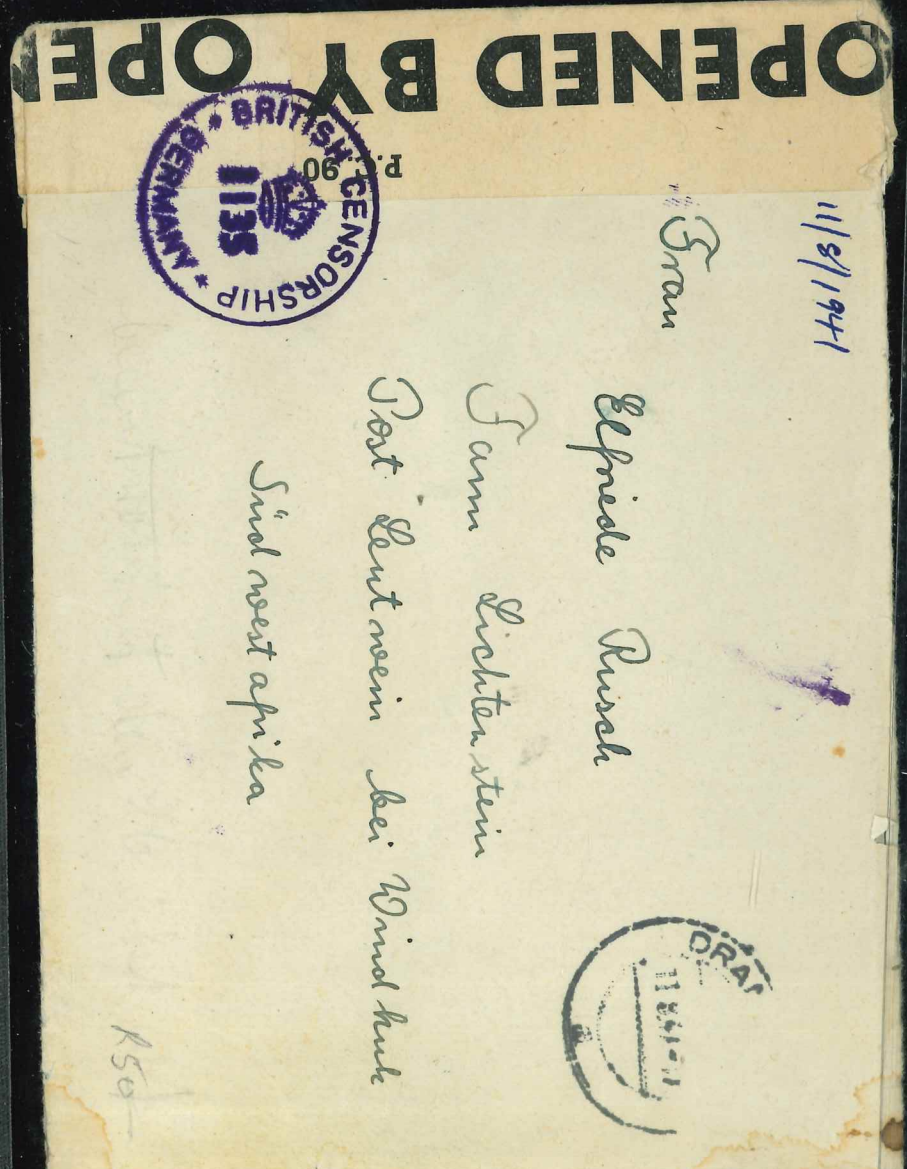 OPENED BY OPEN
P.C. 90
BRITISH CENSORSHIP * GERMANY *
1135
11/8/1941
Frau
Elfriede Rusch
Farm Lichtenstein
Post Leutwein bei Windhuk
Südwestafrika
R50